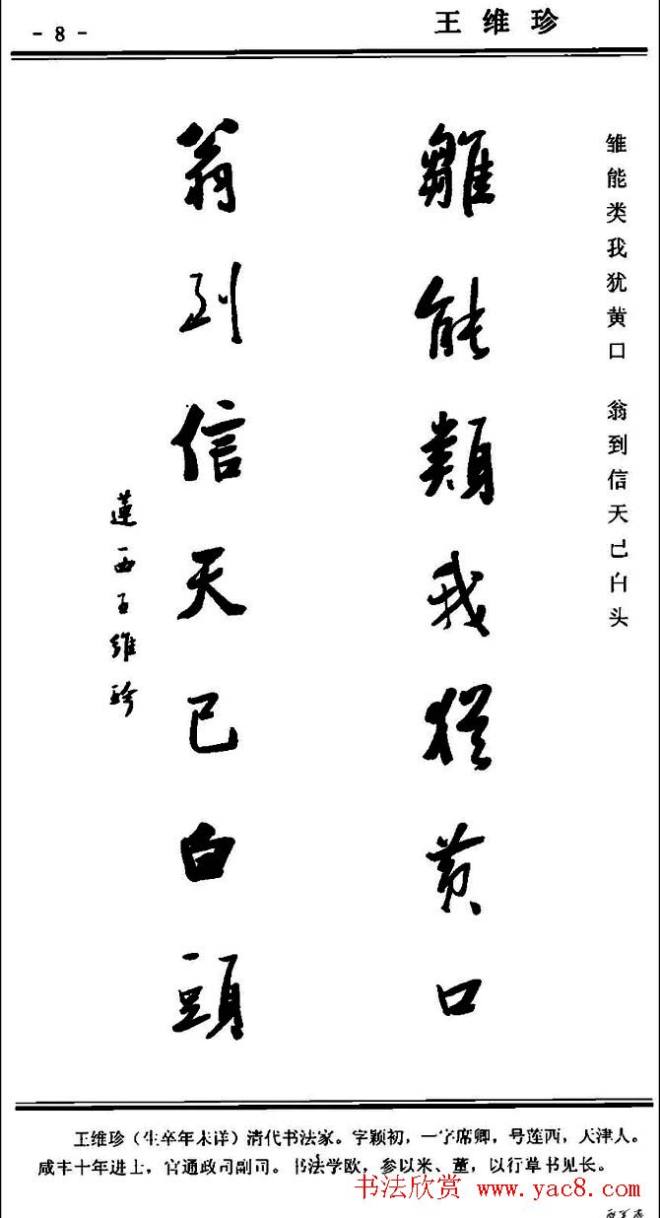 - 8 -
王维珍
雏能类我犹黄口 翁到信天已白头
雛能類我猶黃口
翁到信天已白頭
蓮西王維珍
王维珍（生卒年未详）清代书法家。字颖初，一字席卿，号莲西，天津人。
咸丰十年进士，官通政司副司。书法学欧，参以米、董，以行草书见长。
书法欣赏 www.yac8.com